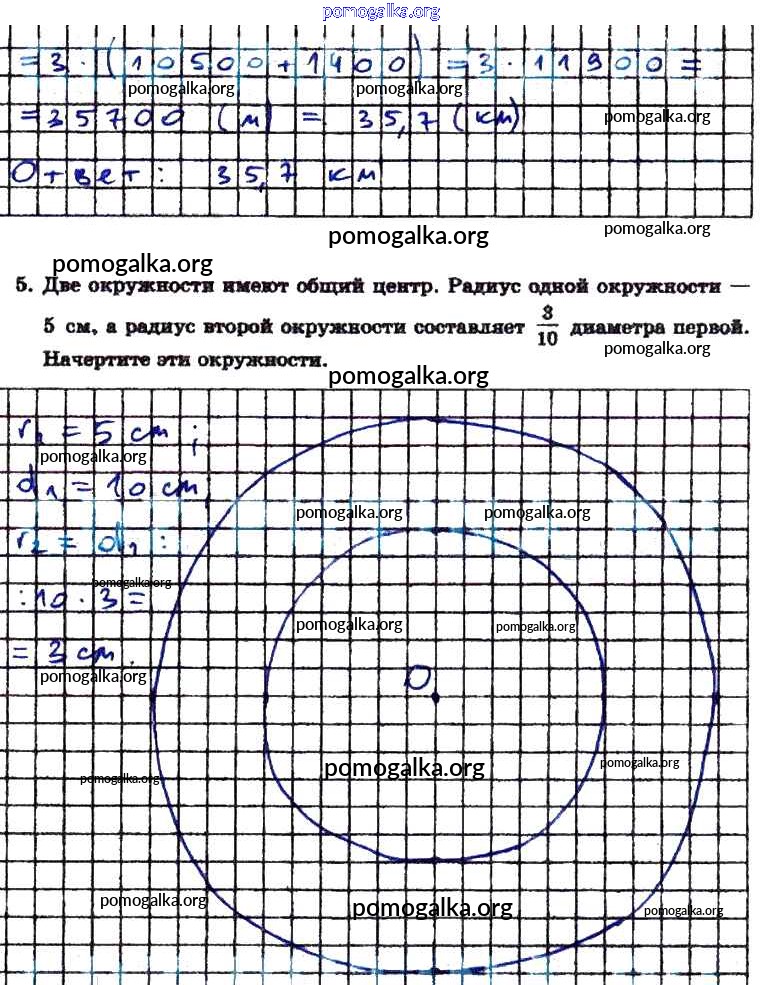 pomogalka.org
= 3 · (10500 + 1400) = 3 · 11900 =
pomogalka.org pomogalka.org
= 35700 (м) = 35,7 (км) pomogalka.org
Ответ: 35,7 км
pomogalka.org pomogalka.org
pomogalka.org
5. Две окружности имеют общий центр. Радиус одной окружности —
5 см, а радиус второй окружности составляет 3/10 диаметра первой.
pomogalka.org
Начертите эти окружности.
pomogalka.org
r₁ = 5 см;
pomogalka.org
d₁ = 10 см
pomogalka.org pomogalka.org
r₂ = d₁ :
pomogalka.org
: 10 · 3 =
pomogalka.org pomogalka.org
= 3 см.
pomogalka.org
O
pomogalka.org pomogalka.org
pomogalka.org
pomogalka.org pomogalka.org pomogalka.org